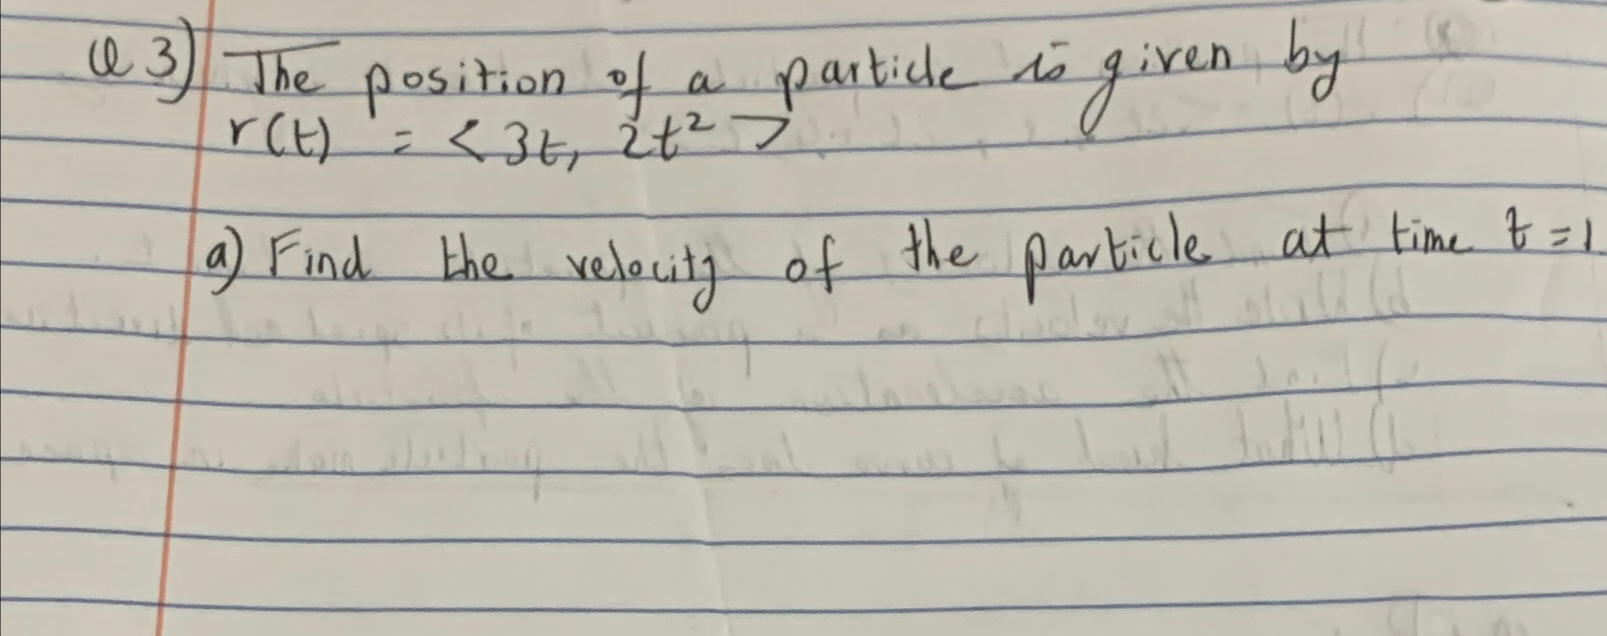 Q 3) The position of a particle is given by
r(t) = < 3t, 2t² >
a) Find the velocity of the particle at time t = 1